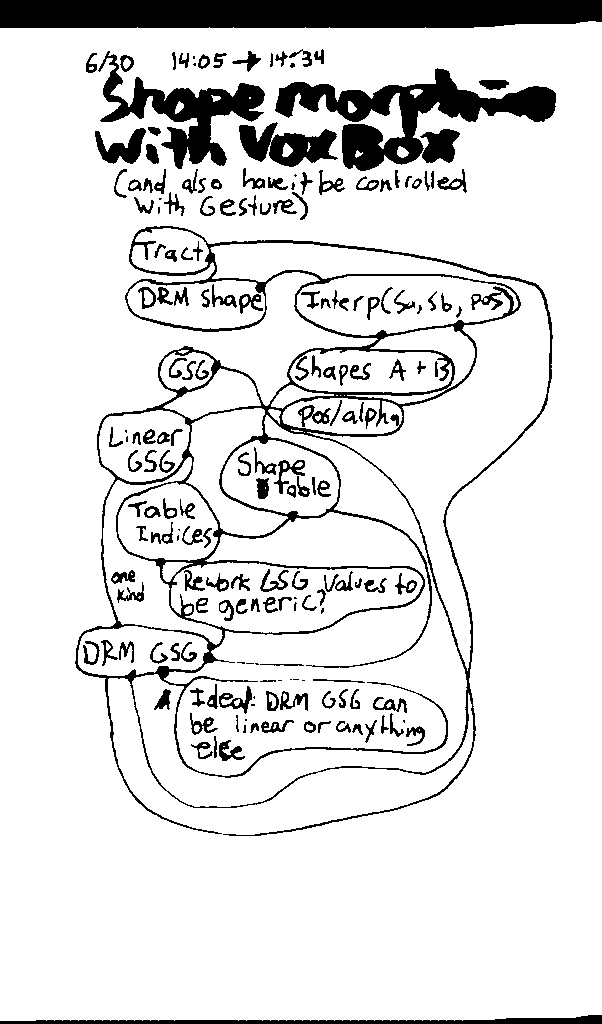 6/30 14:05 → 14:34
Shape morphing
with VoxBox
(and also have it be controlled
with Gesture)
Tract
DRM Shape
Interp(Sa, Sb, pos)
GSG
Shapes A + B
Pos/alpha
Linear
GSG
Shape
table
Table
Indices
one
kind
Rework GSG Values to
be generic?
DRM GSG
Ideal: DRM GSG can
be linear or anything
else